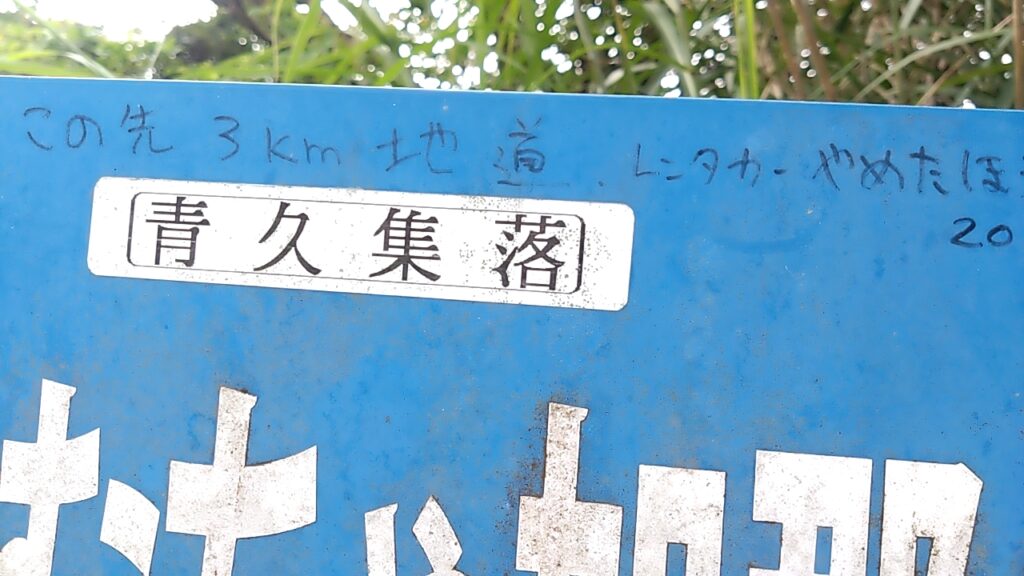 この先 3km 地道. レンタカーやめたほ
20
青久集落